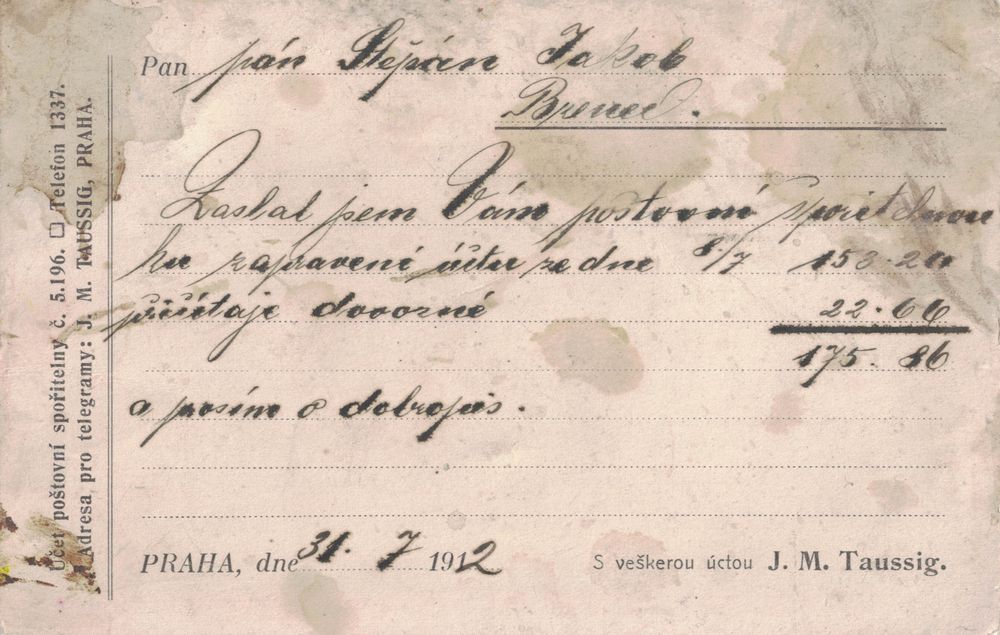 Účet poštovní spořitelny č. 5.196. □ Telefon 1337.
Adresa pro telegramy: J. M. TAUSSIG, PRAHA.
Pan pán Štěpán Jakob
Zaslal jsem Vám poštovní spořitelnou
ku zapravení účtu ze dne 8./7 153.20
přičítaje dovozné 22.66
175.86
a prosím o dobropis.
PRAHA, dne 31. 7 1912
S veškerou úctou J. M. Taussig.